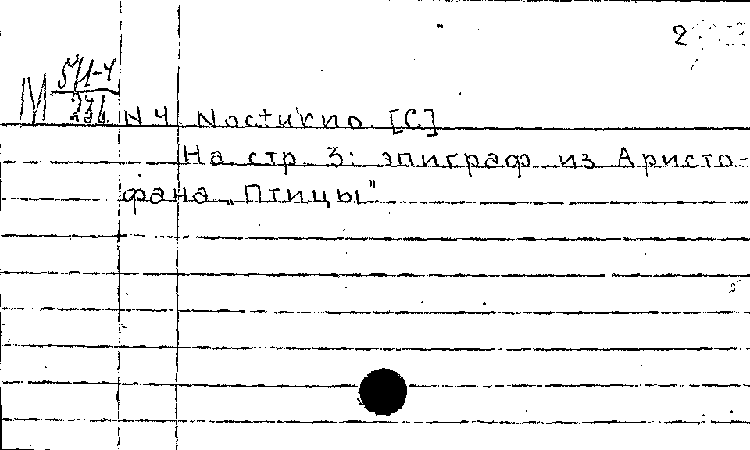 2
М 571-4
N 4 Notturno [C]
На стр. 3: эпиграф из Аристо-
фана „Птицы"